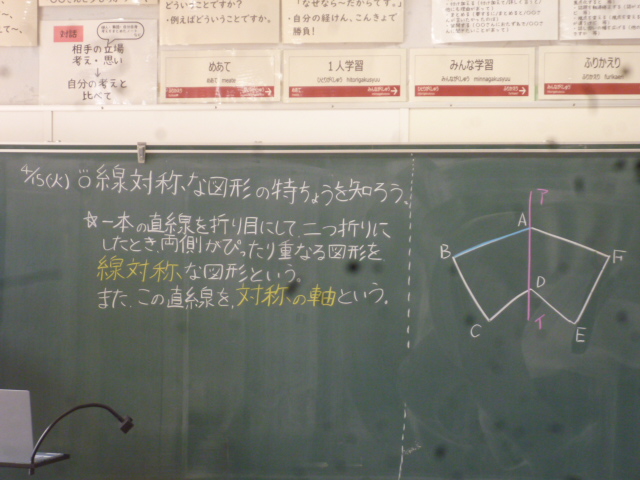 どういうことですか?
・例えばどういうことです。
「なぜなら〜だからです。」
・自分の経けん、こんきょで
勝負!
対話
相手の立場
考え・思い
↓
自分の考えと
比べて
めあて
1人学習
ひとりがくしゅう hitorigakusyuu
みんな学習
みんながくしゅう minnagakusyuu
ふりかえり
4/15(火) 線対称な図形の特ちょうを知ろう。
☆一本の直線を折り目にして、二つ折りに
したとき、両側がぴったり重なる図形を
線対称な図形という。
また、この直線を、対称の軸という。
ア
A
B
F
D
C
イ
E